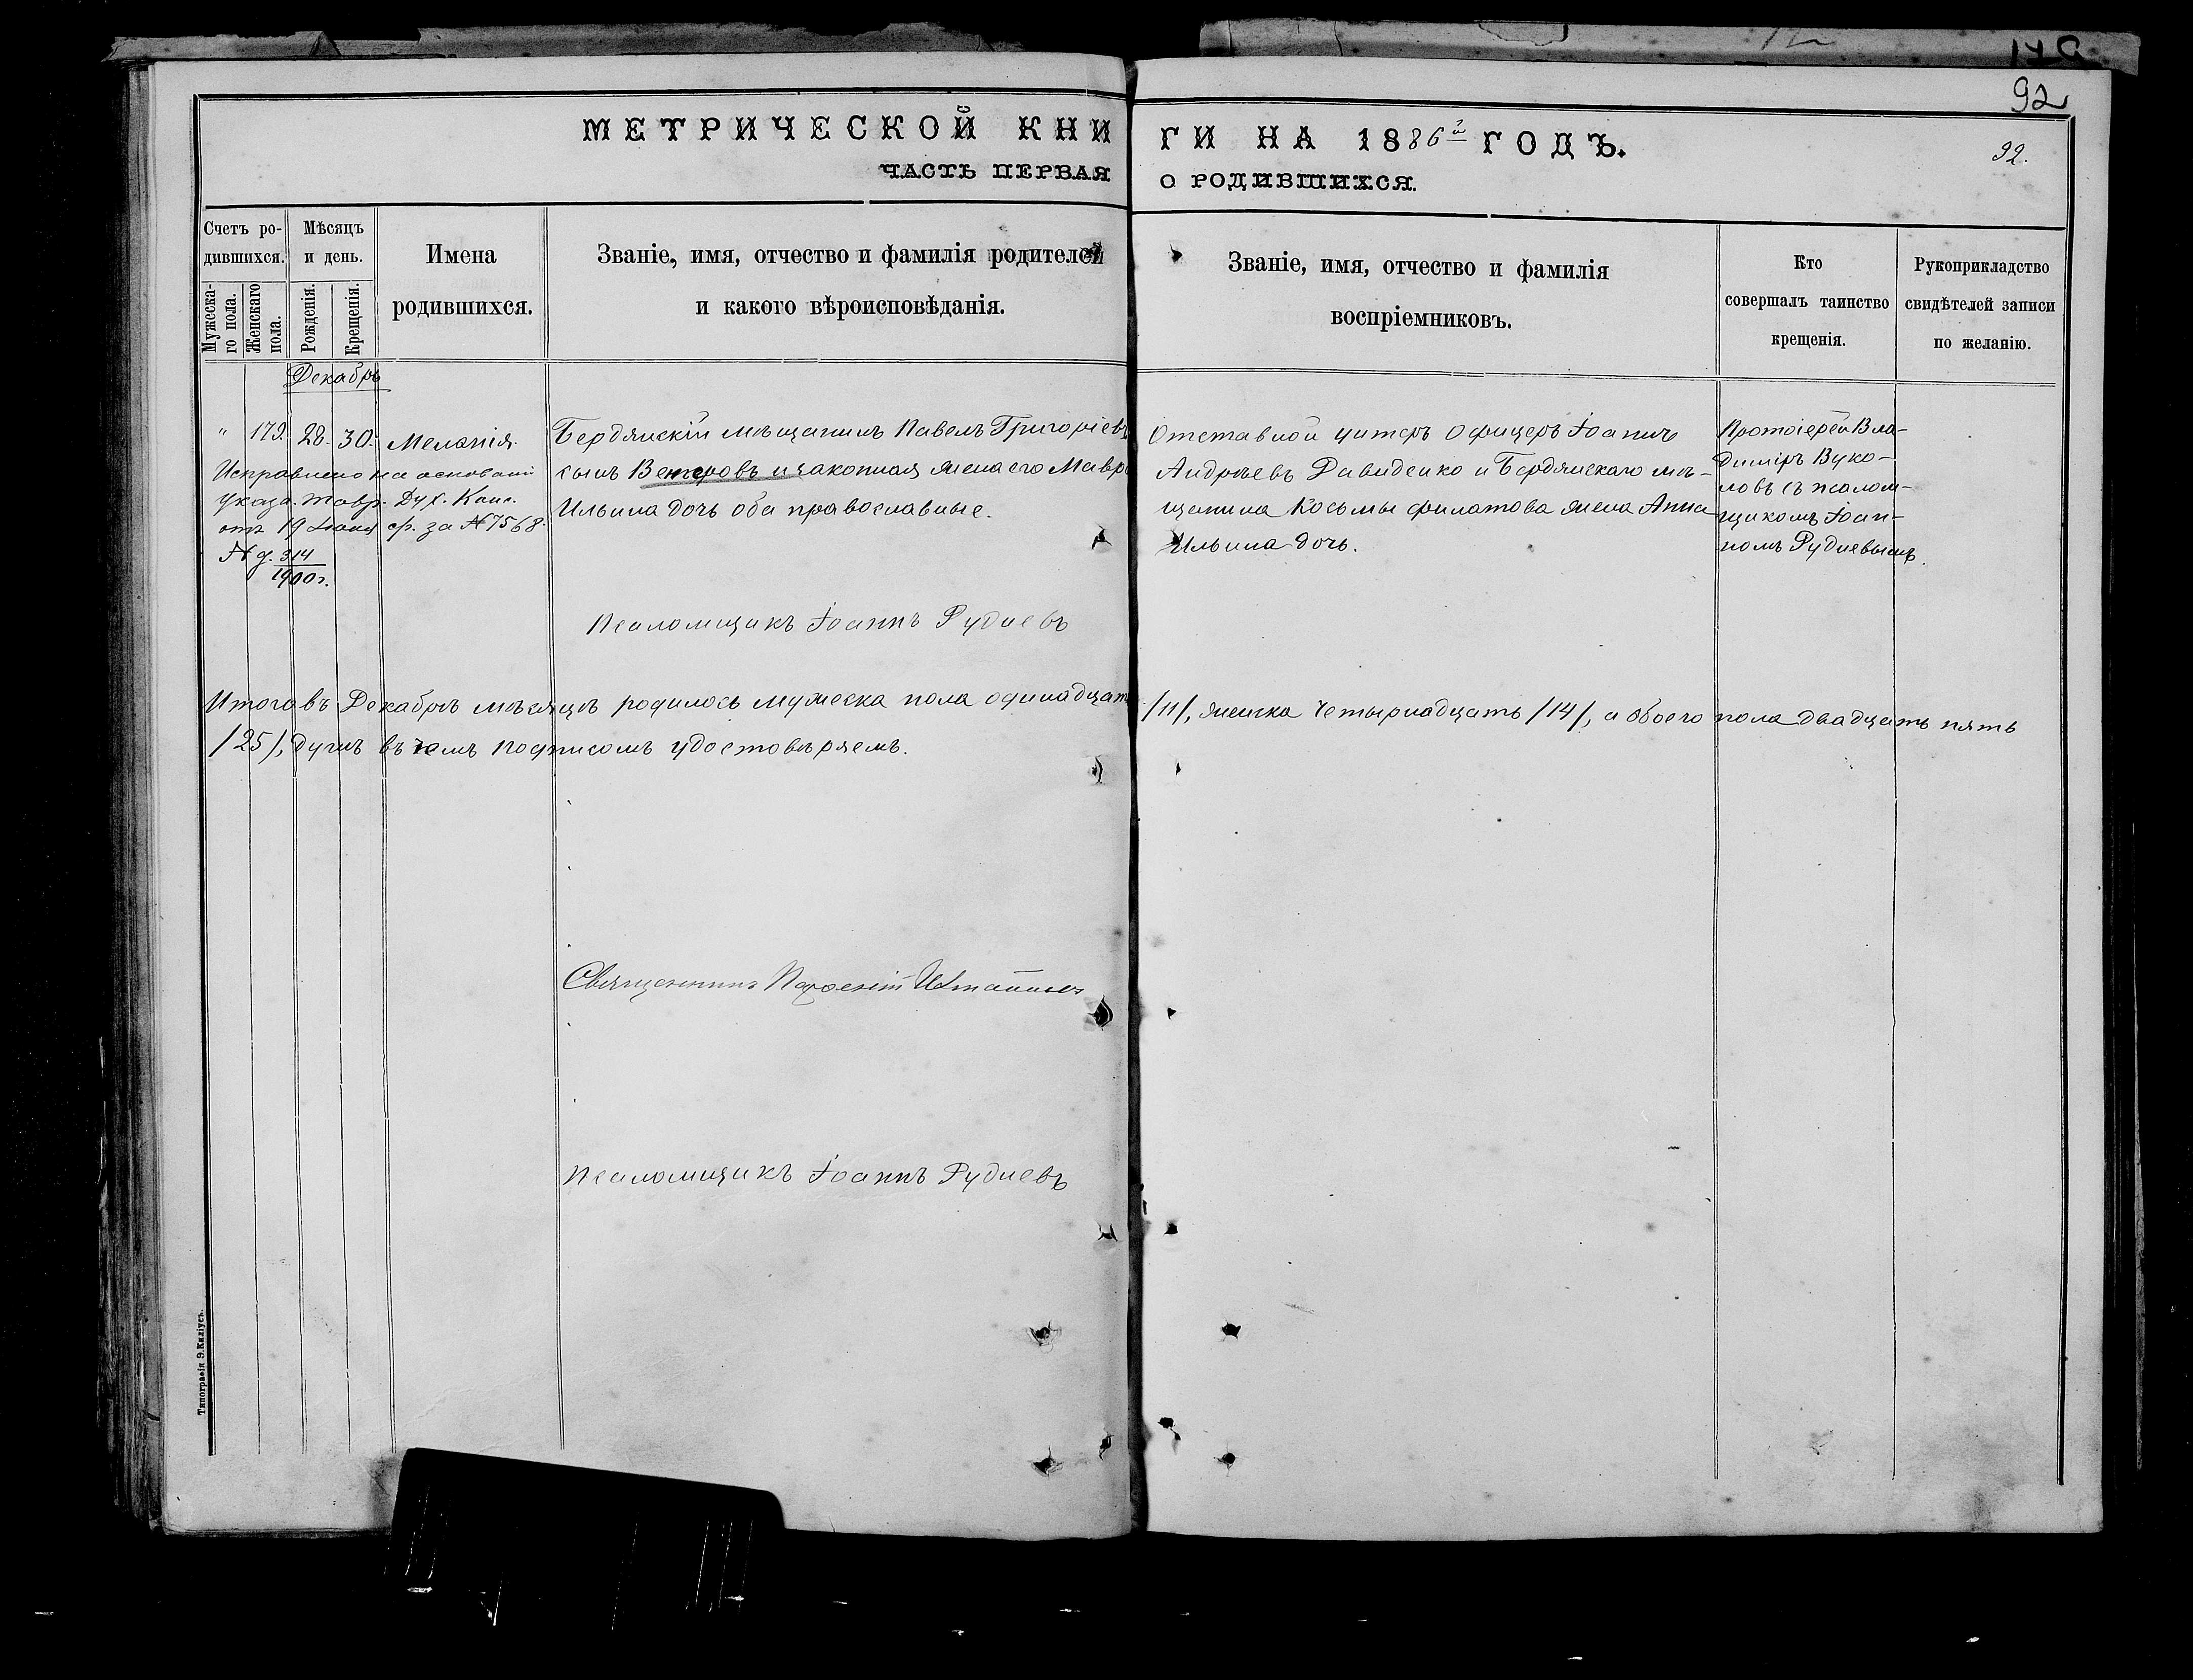 92
МЕТРИЧЕСКОЙ КНИГИ НА 1886й ГОДЪ.
92.
ЧАСТЬ ПЕРВАЯ О РОДИВШИХСЯ.
Счетъ ро-
дившихся.
Мужеска-
го пола.
Женскаго
пола.
Мѣсяцъ
и день.
Рожденія.
Крещенія.
Имена
родившихся.
Званіе, имя, отчество и фамилія родителей
и какого вѣроисповѣданія.
Званіе, имя, отчество и фамилія
воспріемниковъ.
Кто
совершалъ таинство
крещенія.
Рукоприкладство
свидѣтелей записи
по желанію.
Декабрь
" 179. 28. 30. Меланія.
Исправлено на основаніи
указа Тавр. Дух. Конс.
отъ 19 за № 7568.
№ д. 314
1900 г.
Бердянскій мѣщанинъ Павелъ Григоріевъ
сынъ Ветровъ и законная жена его Мавра
Ильина дочь оба православные.
Отставной унтеръ офицеръ Іоаннъ
Андрѣевъ Давиденко и Бердянскаго мѣ-
щанина Косьмы Филатова жена Анна
Ильина дочь.
Протоіерей Вла-
диміръ Вуко-
ловъ съ псалом-
щикомъ Іоан-
номъ Рудневымъ.
Псаломщикъ Іоаннъ Рудневъ
Итого въ Декабрѣ мѣсяцѣ родилось мужеска пола одинадцать /11/, женска четырнадцать /14/, а обоего пола двадцать пять
/25/, душъ въ чемъ подписомъ удостовѣряемъ.
Священникъ
Псаломщикъ Іоаннъ Рудневъ
Типографія Э.Киліусъ.